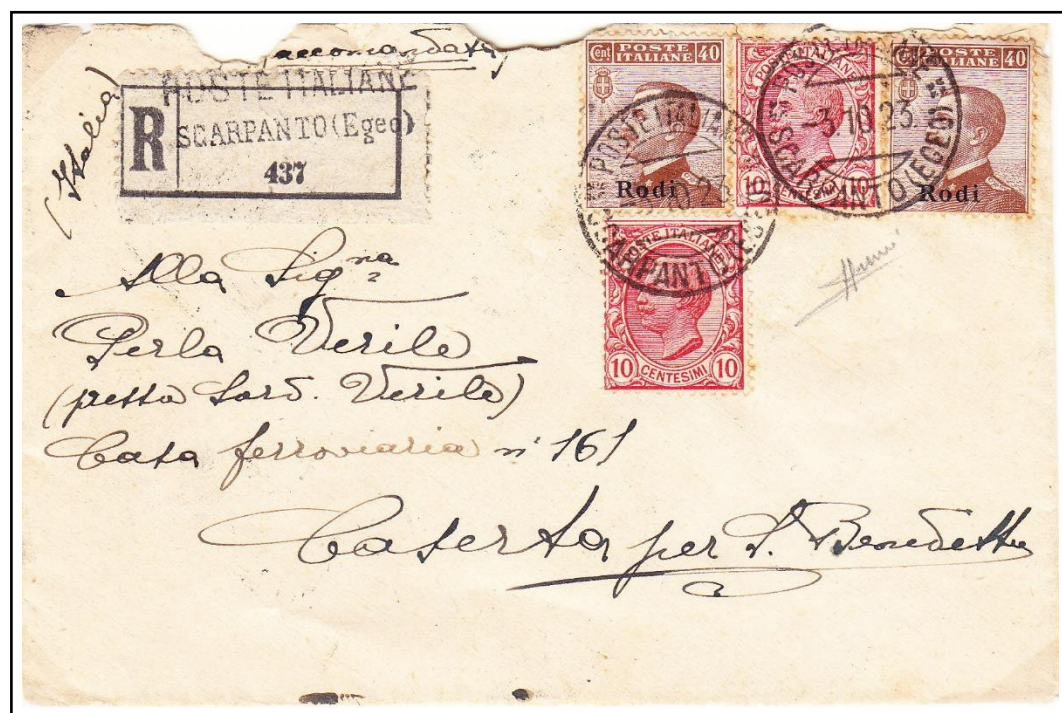 (Italia)
raccomandata
POSTE ITALIANE
R SCARPANTO (Egeo)
437
Cent POSTE ITALIANE 40
Rodi
POSTE ITALIANE
10 CENTESIMI 10
Cent POSTE ITALIANE 40
Rodi
POSTE ITALIANE
10 CENTESIMI 10
POSTE ITALIANE
3 10 23
SCARPANTO (EGEO)
POSTE ITALIANE
-3 10 23
SCARPANTO (EGEO)
Alla Signa
Perla Verile
(presso Sard. Verile)
Casa ferroviaria n° 161
Caserta per S. Benedetto